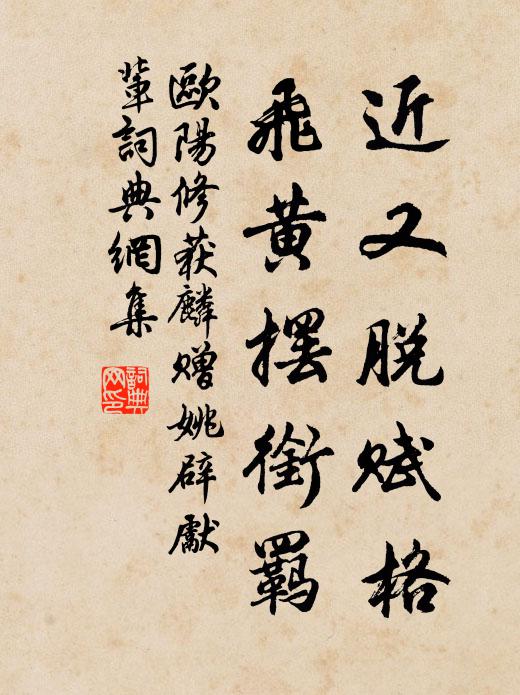 近又脫賦格
飛黃擺銜羈
歐陽修獲麟贈姚辟獻
輩詞典網集
詞典
网印